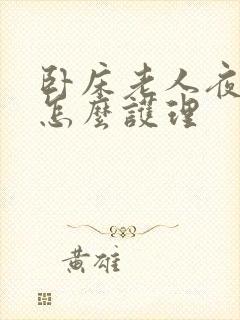 臥床老人夜
怎麼護理
黃雄